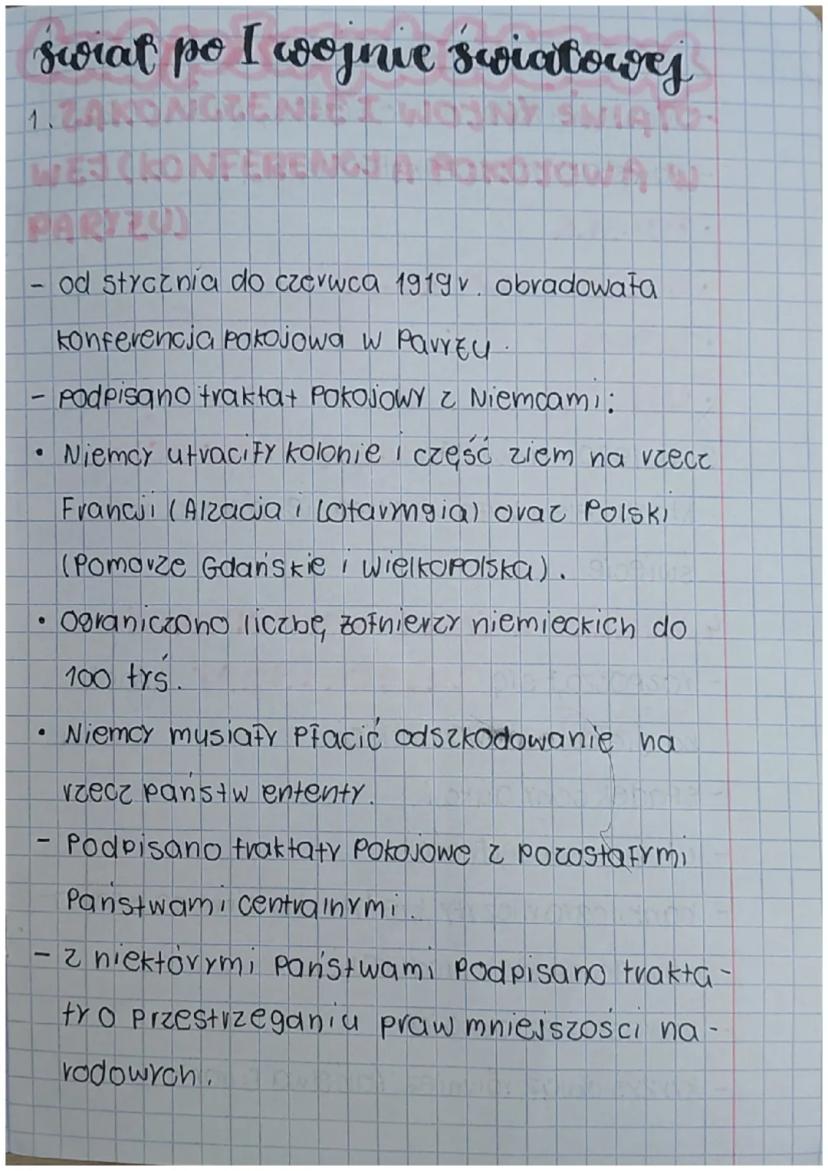 świat po I wojnie światowej
1. ZAKOŃCZENIE I WOJNY ŚWIATO-
WEJ (KONFERENCJA POKOJOWA W
PARYŻU)
- od stycznia do czerwca 1919 r. obradowała
konferencja pokojowa w Paryżu.
- podpisano traktat pokojowy z Niemcami:
• Niemcy utraciły kolonie i część ziem na rzecz
Francji (Alzacja i Lotaryngia) oraz Polski
(Pomorze Gdańskie i Wielkopolska).
• Ograniczono liczbę żołnierzy niemieckich do
100 tyś.
• Niemcy musiały płacić odszkodowanie na
rzecz państw ententy.
- Podpisano traktaty pokojowe z pozostałymi
państwami centralnymi.
- z niektórymi państwami podpisano trakta-
ty o przestrzeganiu praw mniejszości na-
rodowych.